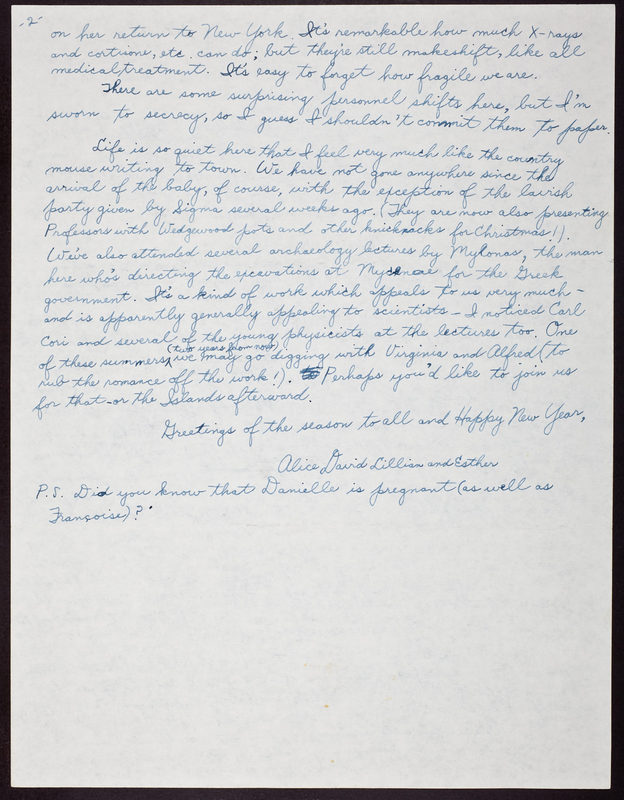 -2-
on her return to New York. It's remarkable how much X-rays
and cortisone, etc. can do; but they're still makeshift, like all
medical treatment. It's easy to forget how fragile we are.
There are some surprising personnel shifts here, but I'm
sworn to secrecy, so I guess I shouldn't commit them to paper.
Life is so quiet here that I feel very much like the country
mouse writing to town. We have not gone anywhere since the
arrival of the baby, of course, with the exception of the lavish
party given by Sigma several weeks ago. (They are now also presenting
Professors with Wedgewood pots and other knicknacks for Christmas!).
We've also attended several archaeology lectures by Mylonas, the man
here who's directing the excavations at Mycenae for the Greek
government. It's a kind of work which appeals to us very much -
and is apparently generally appealing to scientists - I noticed Carl
Cori and several of the young physicists at the lectures too. One
of these summers (two years from now) we may go digging with Virginia and Alfred (to
rub the romance off the work!). Perhaps you'd like to join us
for that - or the Islands afterward.
Greetings of the season to all and Happy New Year,
Alice David Lillian and Esther
P.S. Did you know that Danielle is pregnant (as well as
Françoise)?